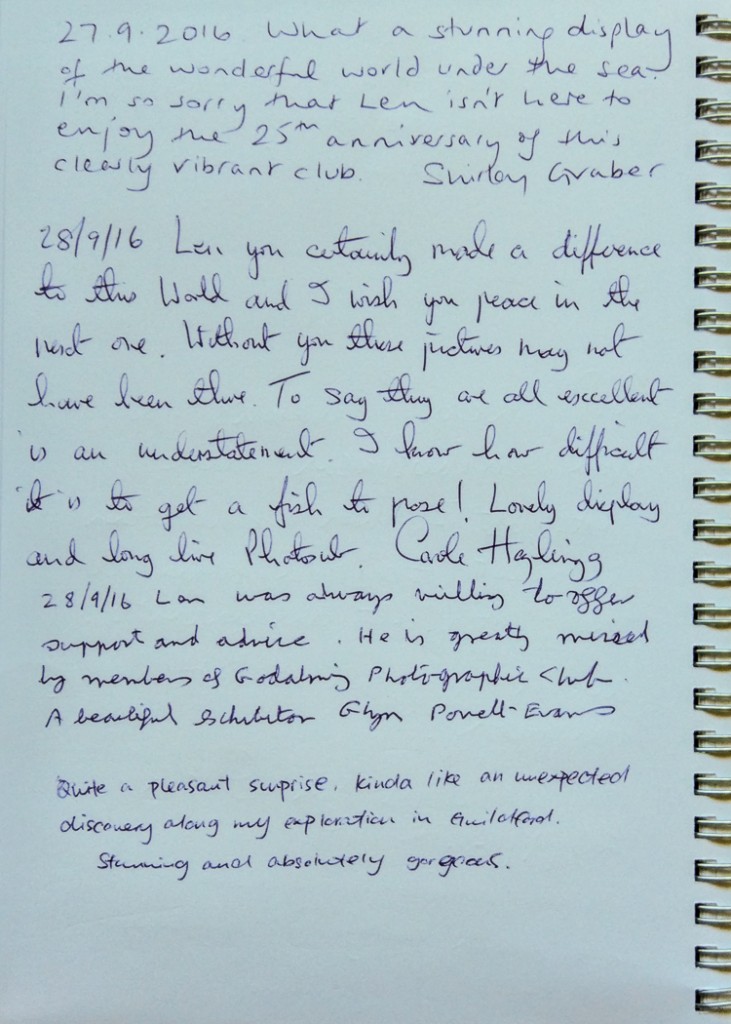 27.9.2016 What a stunning display
of the wonderful world under the sea.
I'm so sorry that Len isn't here to
enjoy the 25th anniversary of this
clearly vibrant club. Shirley Graber
28/9/16 Len you certainly made a difference
to this World and I wish you peace in the
next one. Without you these pictures may not
have been there. To say they are all excellent
is an understatement. I know how difficult
it is to get a fish to pose! Lovely display
and long live Photosub. Carole
28/9/16 Len was always willing to offer
support and advice. He is greatly missed
by members of Godalming Photographic Club.
A beautiful exhibition Glyn Powell-Evans
Quite a pleasant surprise. Kinda like an unexpected
discovery along my exploration in Guildford.
Stunning and absolutely gorgeous.